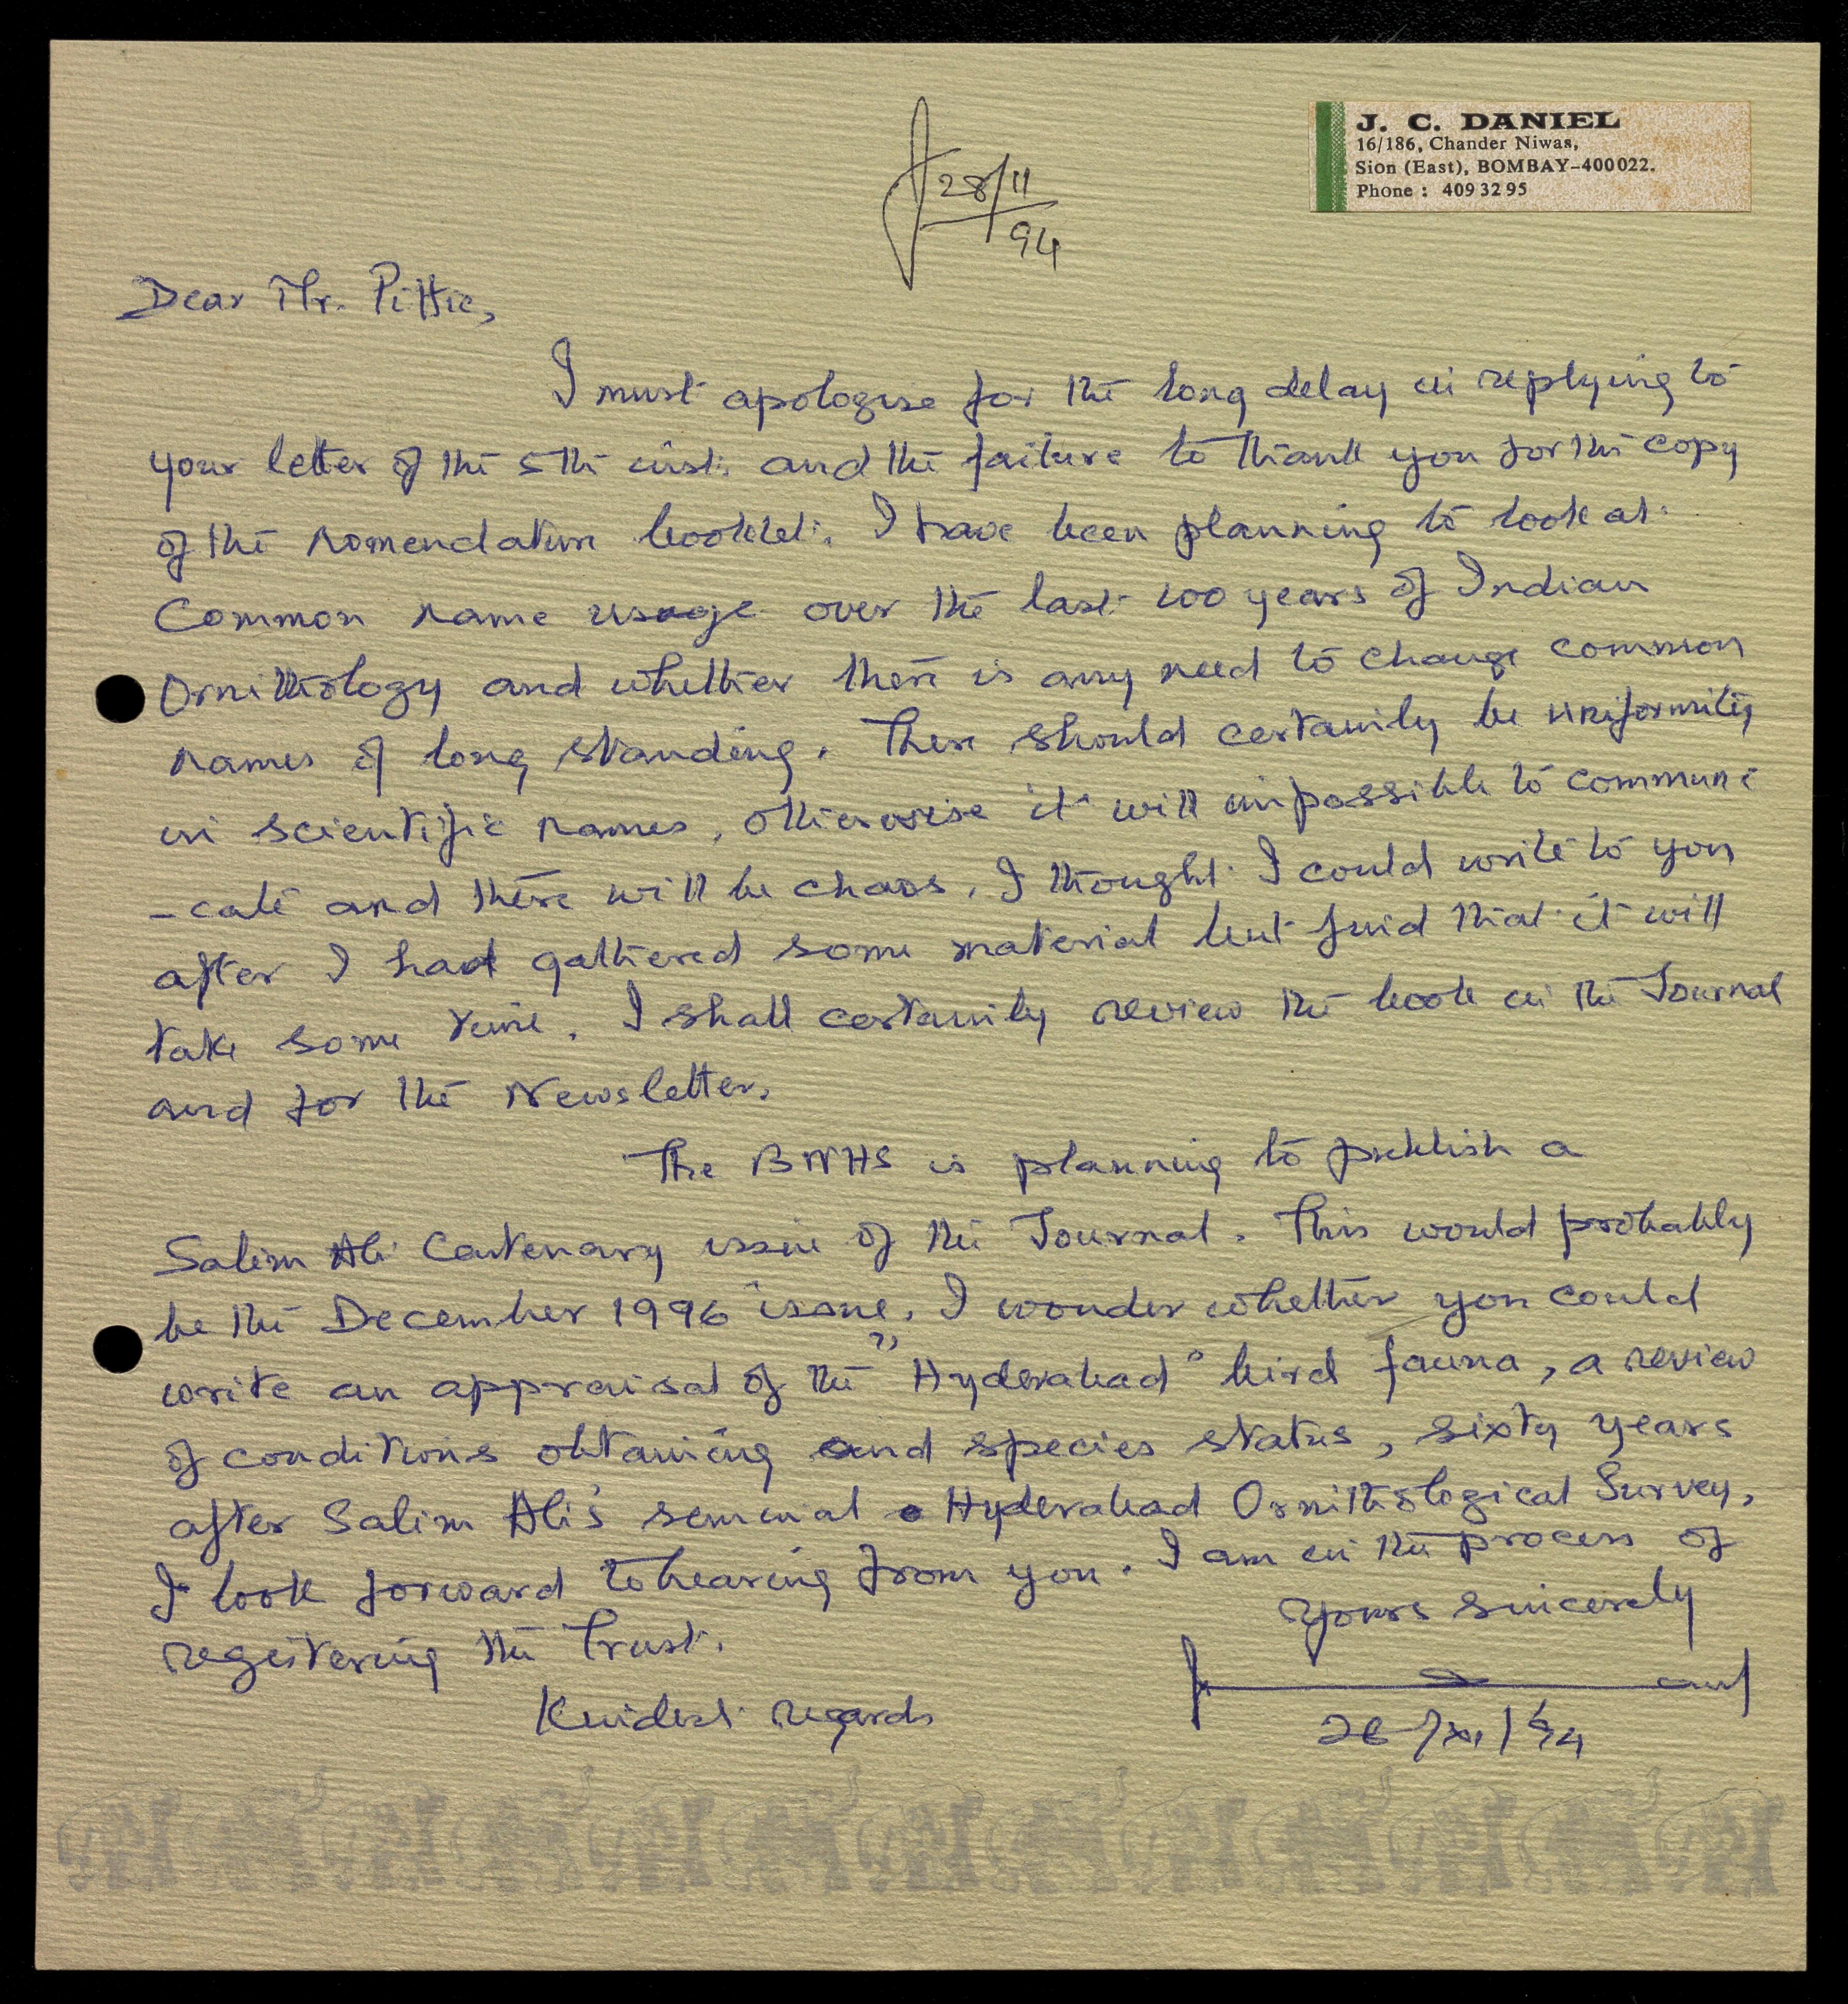 J. C. DANIEL
16/186, Chander Niwas,
Sion (East), BOMBAY-400022.
Phone : 409 32 95
28/11
94
Dear Mr. Pittie,
I must apologise for the long delay in replying to
your letter of the 5th inst. and the failure to thank you for the copy
of the nomenclature booklet. I have been planning to look at
Common name usage over the last 100 years of Indian
Ornithology and whether there is any need to change common
names of long standing. There should certainly be uniformity
in scientific names, otherwise it will impossible to communi
-cate and there will be chaos. I thought I could write to you
after I had gathered some material but find that it will
take some time. I shall certainly review the book in the Journal
and for the Newsletter.
The BNHS is planning to publish a
Salim Ali Centenary issue of the Journal. This would probably
be the December 1996 issue. I wonder whether you could
write an appraisal of the "Hyderabad" bird fauna, a review
of conditions obtaining and species status, sixty years
after Salim Ali's seminal Hyderabad Ornithological Survey.
I look forward to hearing from you. I am in the process of
registering the Trust.
Yours sincerely
Kindest regards
/XI/94